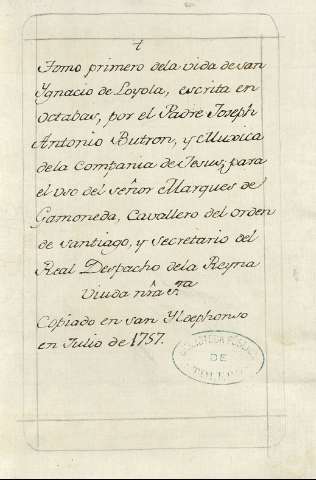 †
Tomo primero dela vida de san
Ygnacio de Loyola, escrita en
octabas, por el Padre Joseph
Antonio Butron, y Muxica
dela Compania de Jesus; para
el uso del señor Marques de
Gamoneda, Cavallero del orden
de santiago, y secretario del
Real Despacho dela Reyna
Viuda nrã srã
Copiado en san Yldephonso
en Julio de 1757.
BIBLIOTECA PUBLICA
DE
TOLEDO